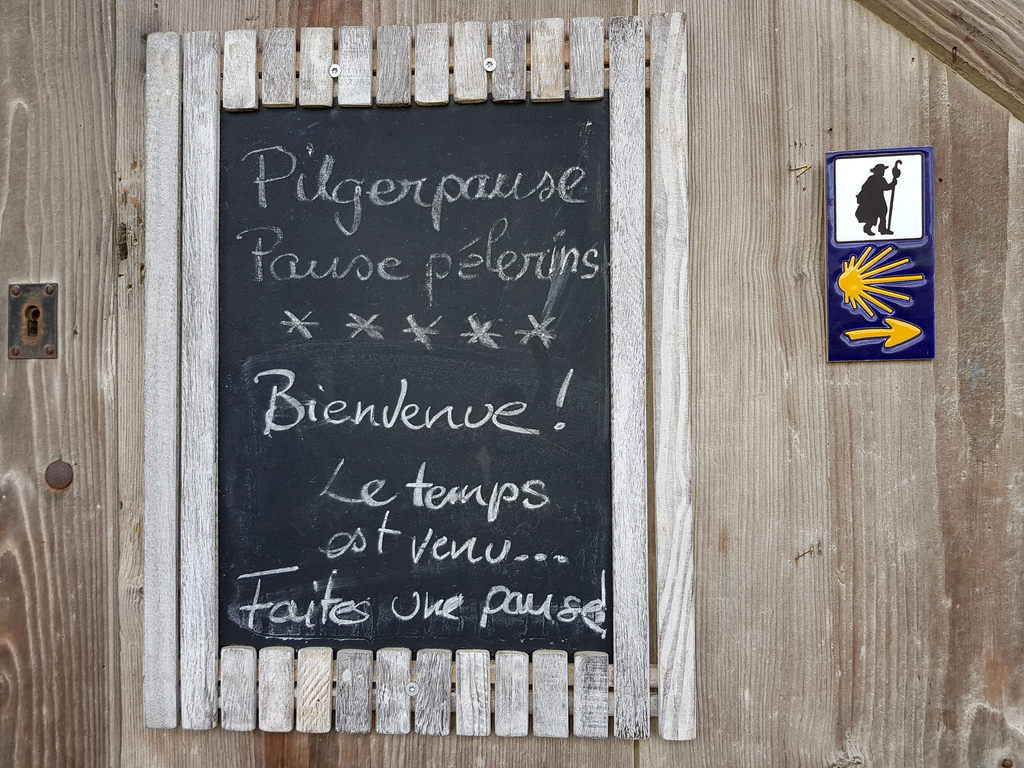 Pilgerpause
Pause pélerins
* * * * *
Bienvenue !
Le temps
est venu...
Faites une pause!